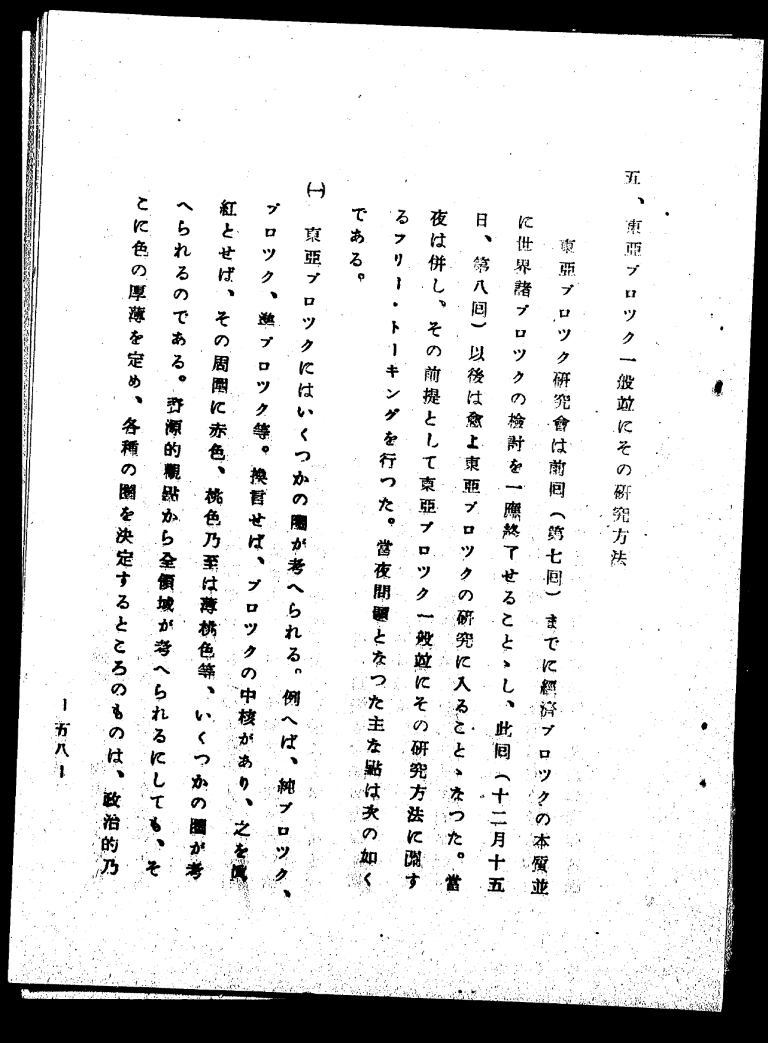 五、東亞ブロツク一般竝にその研究方法
東亞ブロツク研究會は前回（第七回）までに經濟ブロツクの本質並
に世界諸ブロツクの檢討を一應終了せることゝし、此回（十二月十五
日、第八回）以後は愈よ東亞ブロツクの研究に入ることゝなつた。當
夜は併し、その前提として東亞ブロツク一般竝にその研究方法に關す
るフリー・トーキングを行つた。當夜問題となつた主な點は次の如く
である。
㈠　東亞ブロツクにはいくつかの圈が考へられる。例へば、純ブロツク、
ブロツク、準ブロツク等。換言せば、ブロツクの中核があり、之を眞
紅とせば、その周圍に赤色、桃色乃至は薄桃色等、いくつかの圈が考
へられるのである。資源的觀點から全領域が考へられるにしても、そ
こに色の厚薄を定め、各種の圈を決定するところのものは、政治的乃
ー五八ー